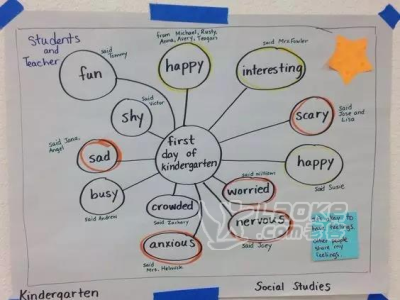 Students
and
Teacher
said
Tommy
fun
from Michael, Rusty,
Anna, Avery, Teagan
happy
said Mrs. Fowler
interesting
shy
said
Victor
scary
Said
Jose and
Lisa
said Jana,
Angel
sad
first
day of
kindergarten
happy
said Susie
busy
Said Andrew
crowded
said Zachary
said William
worried
nervous
said Joey
anxious
said
Mrs.
feelings
other people
share my
feelings.
Kindergarten
Social Studies